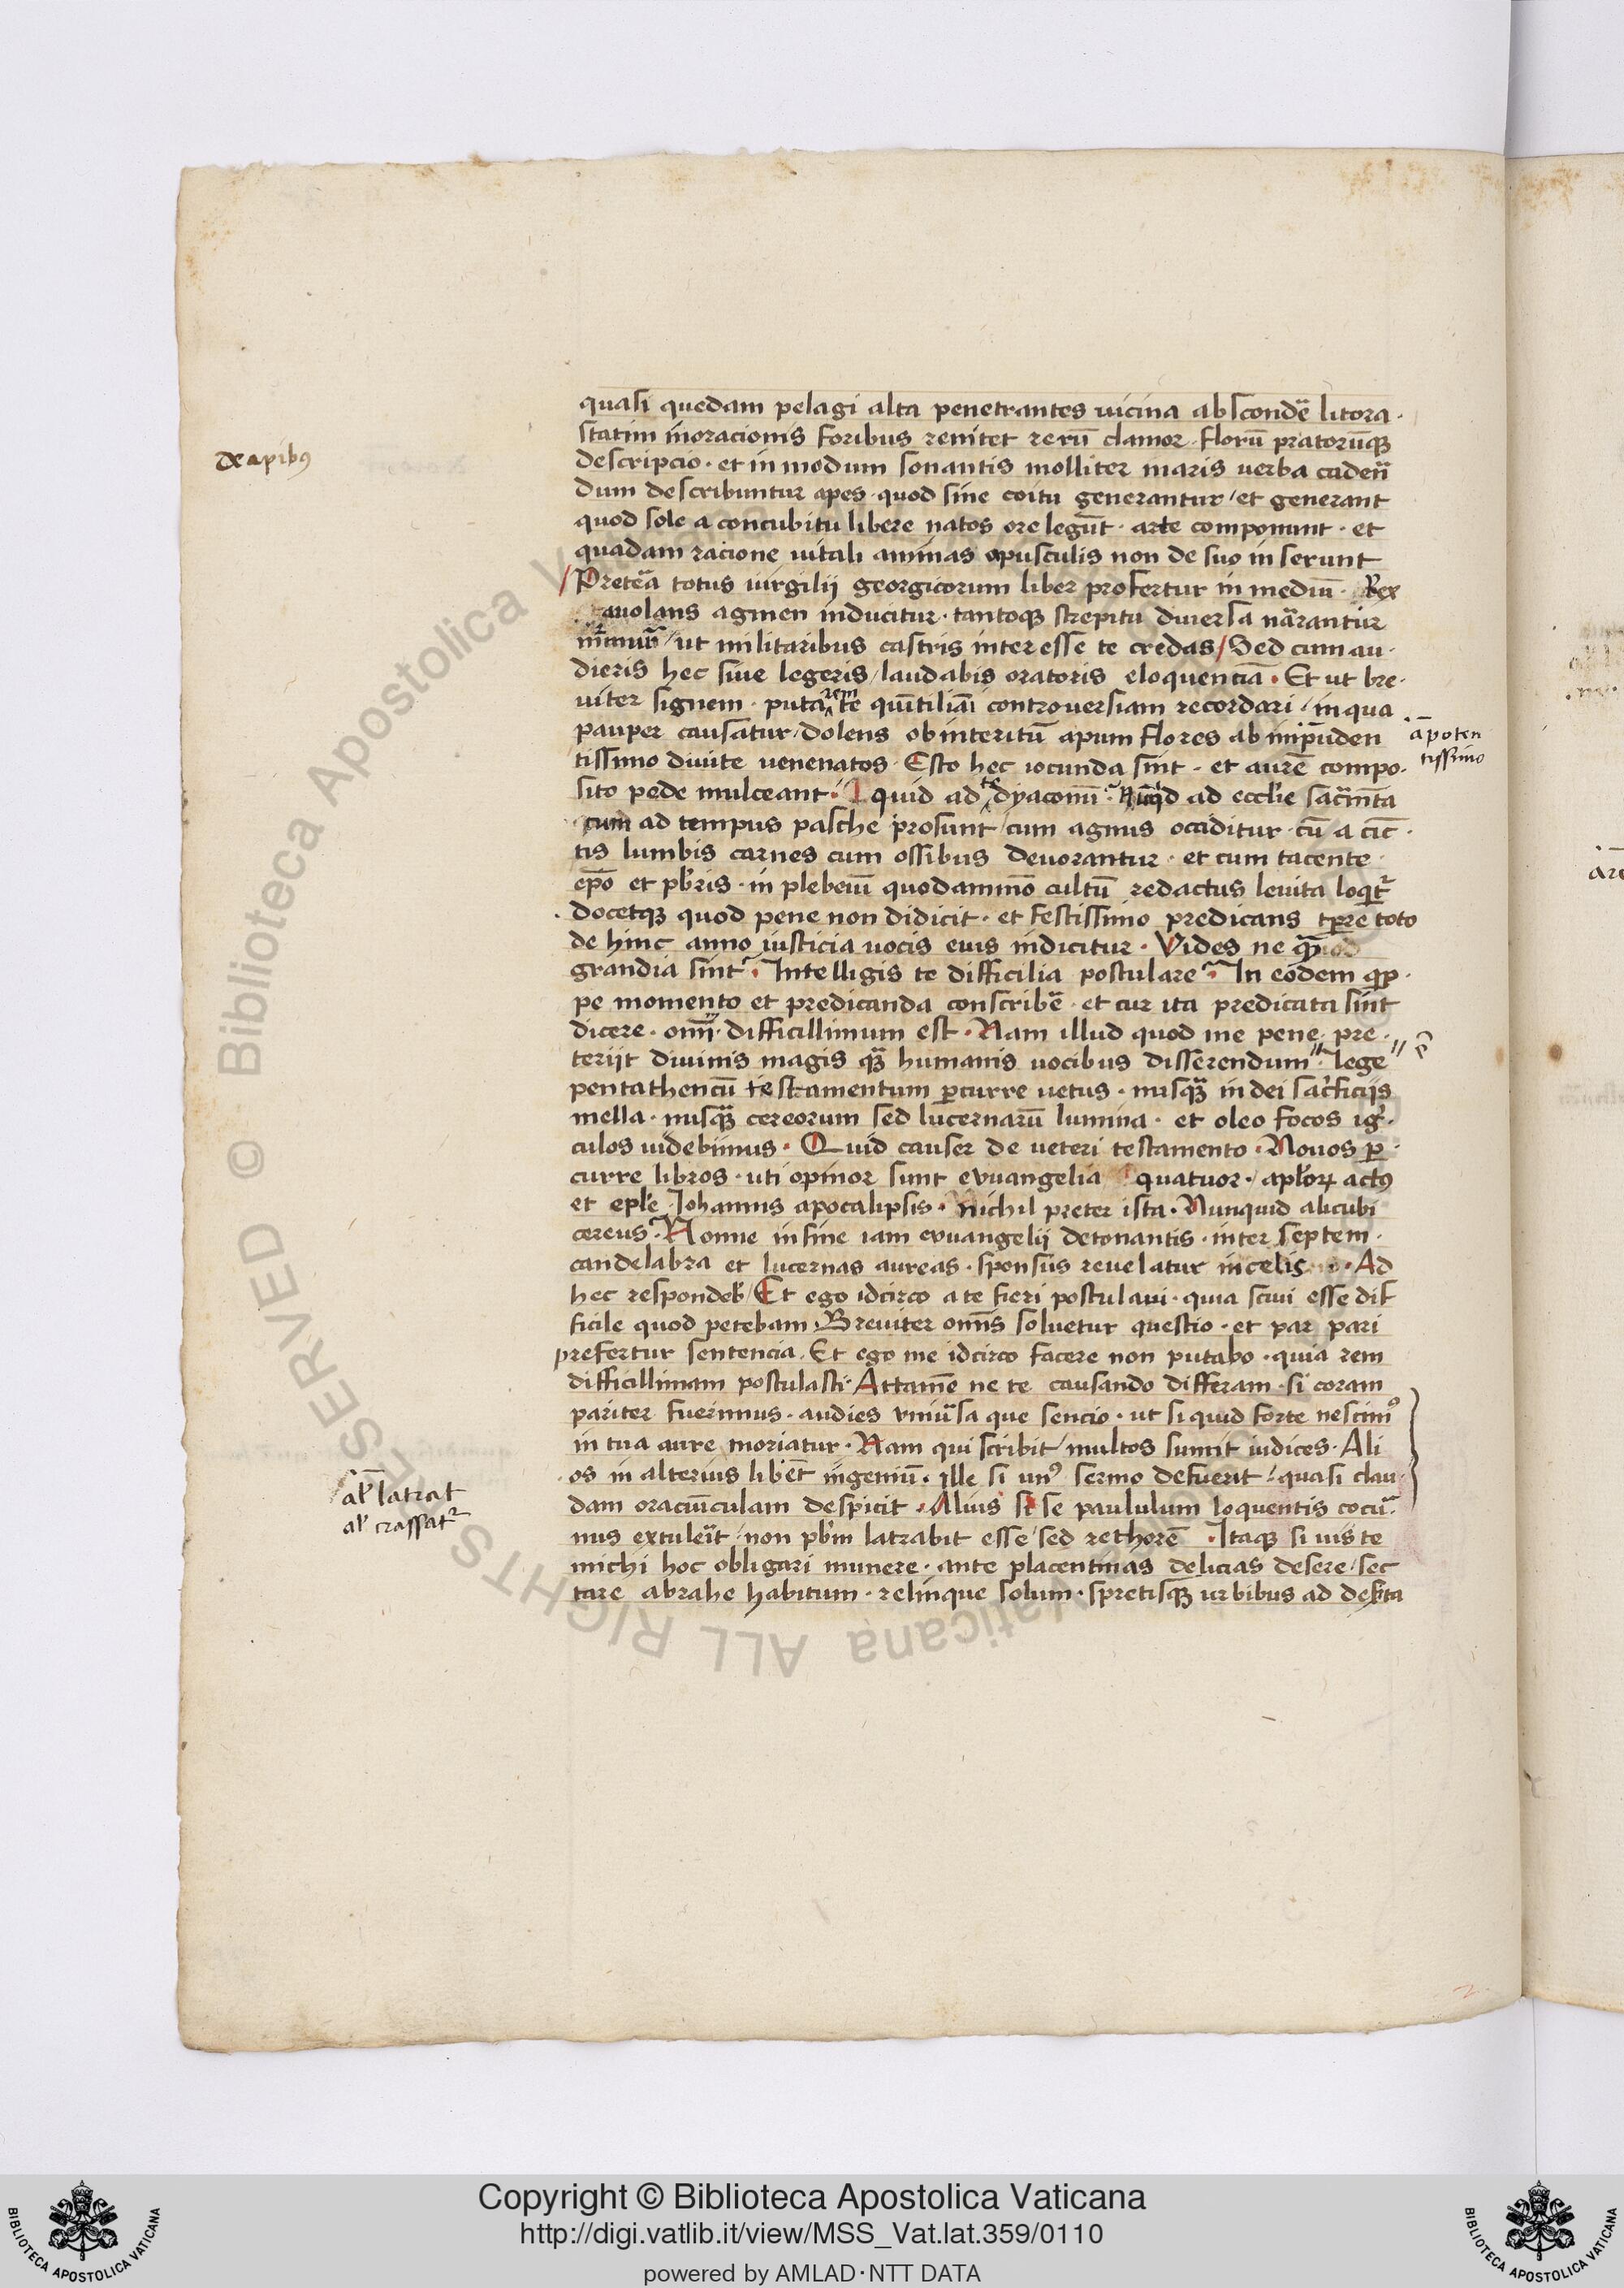 quasi quedam pelagi alta penetrantes uicina abscondē litora ·
statim in oracionis foribus renitet rerū clamor · florū pratorūqꝫ
de apibꝰ
descripcio · et in modum sonantis molliter maris uerba cadenñ
Dum describuntur apes · quod sine coitu generantur / et generant
quod sole a concubitu libere natos ore legūt · arte componunt · et
quadam racione uitali animas opusculis non de suo inserunt
/ Pretēa totus uirgilij georgicorum liber profertur in mediū · Rex
auolans agmen inducitur · tantoqꝫ strepitu diuersa nārantur
ut militaribus castris interesse te credas / Sed cum au ·
dieris hec siue legeris / laudabis oratoris eloquenciā · Et ut bre ·
uiter signem · putarem te quītiliāi controuersiam recordari / in qua
pauper causatur / dolens ob interitū apum flores ab inpūden
a poten
tissimo
tissimo diuite uenenatos · Esto hec iocunda sint · et aurē compo ·
sito pede mulceant · quid ad te dyaconū · quid ad eccl'ie sacīnta
cum ad tempus pasche prosunt / cum agnus occiditur · cū acīc ·
tis lumbis carnes cum ossibus deuorantur · et cum tacente ·
ep̄o et pb'ris · in plebeiū quodammō cultū redactus leuita loqr̄
docetqꝫ quod pene non didicit · et festissimo predicans tp̄re toto
de hinc anno iusticia uocis eius indicitur · Vides ne
grandia sint · Intelligis te difficilia postulare · In eodem qp ·
pe momento et predicanda conscribē · et cur ita predicata sint
dicere · omī difficillimum est · Nam illud quod me pene pre ·
terijt diuinis magis qꝫ humanis uocibus disserendum ē · lege
pentatheucū testamentum ꝑcurre uetus · nusqꝫ in dei sacrificijs
mella · nusqꝫ cereorum sed lucernarū lumina · et oleo focos ig' ·
culos uidebimus · Quid causer de ueteri testamento · Nouos ꝑ ·
curre libros · uti opinor sunt evuangelia quatuor · apl'oꝝ actꝰ
et epl'e Johannis apocalipsis · Nichil preter ista · Nunquid alicubi
cereus · Nonne in fine iam evuangelij detonantis · inter septem ·
candelabra et lucernas aureas · sponsus reuelatur in celis · Ad
hec respondeb' / Et ego idcirco a te fieri postulaui · quia sciui esse dif
ficile quod petebam Breuiter omīs soluetur questio · et par pari
prefertur sentencia · Et ego me idcirco facere non putabo · quia rem
difficillimam postulasti · Attamē ne te causando differam · si coram
pariter fuerimus · audies vniūsa que sencio · ut si quid forte nescimꝰ
in tua aure moriatur · Nam qui scribit / multos sumit iudices · Ali
os in alterius lib'et ingeniū · ille si unꝰ sermo defuerit / quasi clau ·
al' latrat
dam oraciūculam despicit · Alius si se paululum loquentis cocū ·
al' crassatr
nus extuleīt / non pb'm latrabit esse / sed rethorē · Itaqꝫ si uis te
michi hoc obligari munere · ante placentinas delicias desere / sec
tare abrahe habitum · relinque solum · spretisqꝫ urbibus ad deserta
Copyright © Biblioteca Apostolica Vaticana
http://digi.vatlib.it/view/MSS_Vat.lat.359/0110
powered by AMLAD·NTT DATA
BIBLIOTECA APOSTOLICA VATICANA
BIBLIOTECA APOSTOLICA VATICANA
© Biblioteca Apostolica Vaticana ALL RIGHTS RESERVED